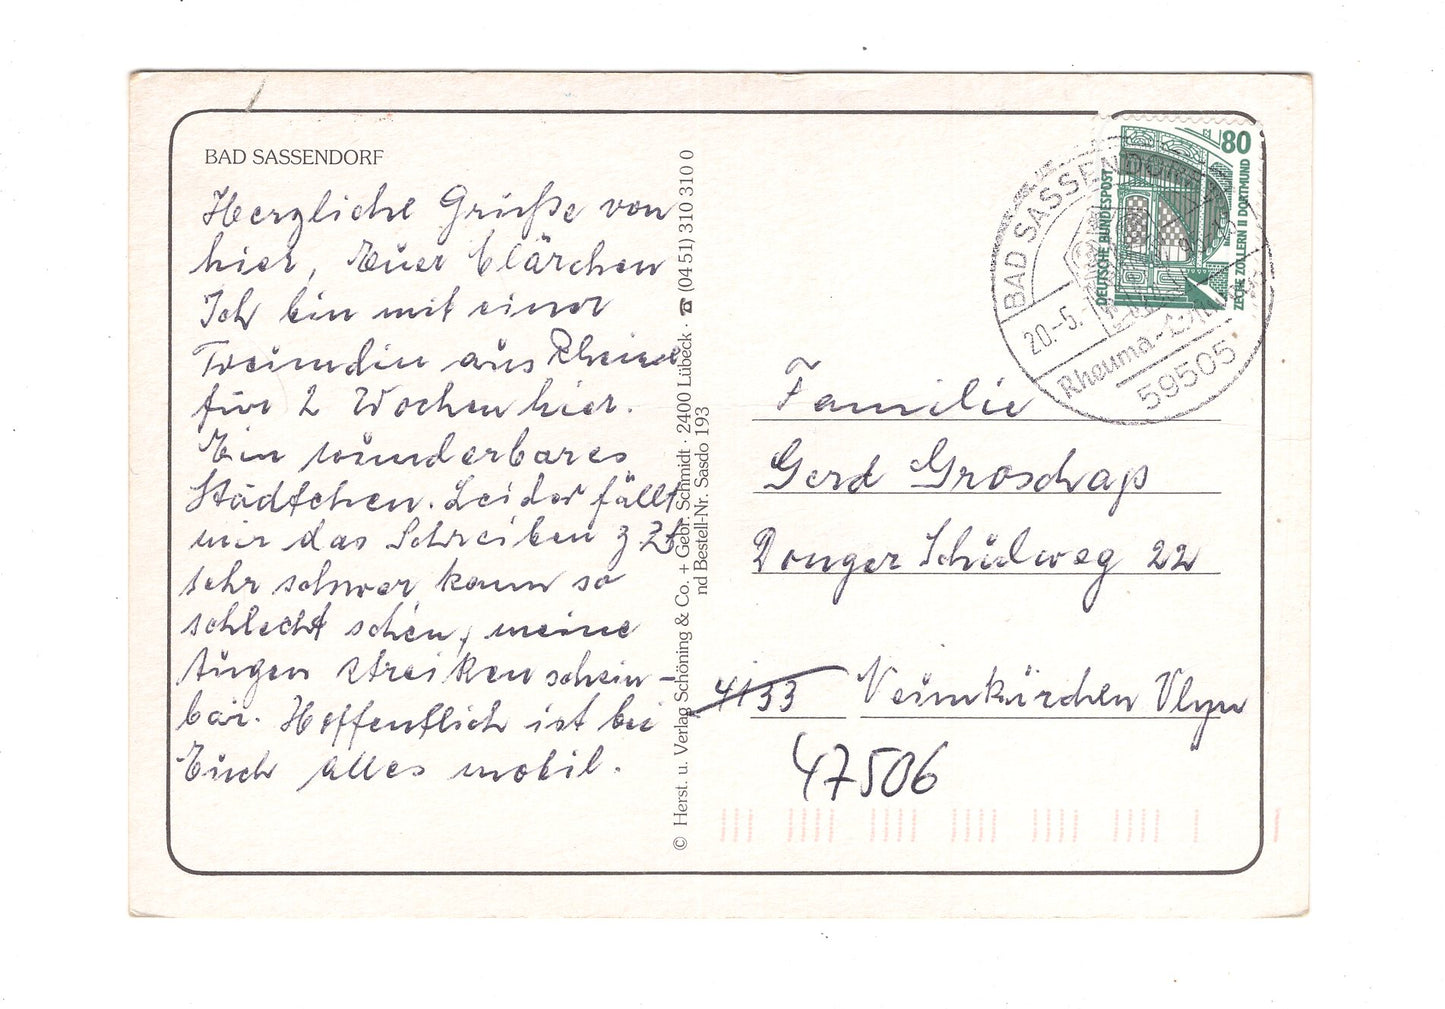 BAD SASSENDORF
Herzliche Grüße von
hier, Euer Clärchen
Ich bin mit einer
Freundin aus Rheine
für 2 Wochen hier.
Ein wunderbares
Städtchen. Leider fällt
mir das Schreiben z Zt
sehr schwer kann so
schlecht sehen, meine
Augen streiken schein-
bar. Hoffentlich ist bei
Euch alles mobil.
© Herst. u. Verlag Schöning & Co. + Gebr. Schmidt · 2400 Lübeck · ☎ (04 51) 310 310 0
nd Bestell-Nr. Sasdo 193
80
DEUTSCHE BUNDESPOST
ZECHE ZOLLERN II DORTMUND
BAD SASSENDORF
20.-5.
Rheuma-
59505
Familie
Gerd Groschap
Donger Schulweg 22
4133 Neunkürchen Vlyn
47506